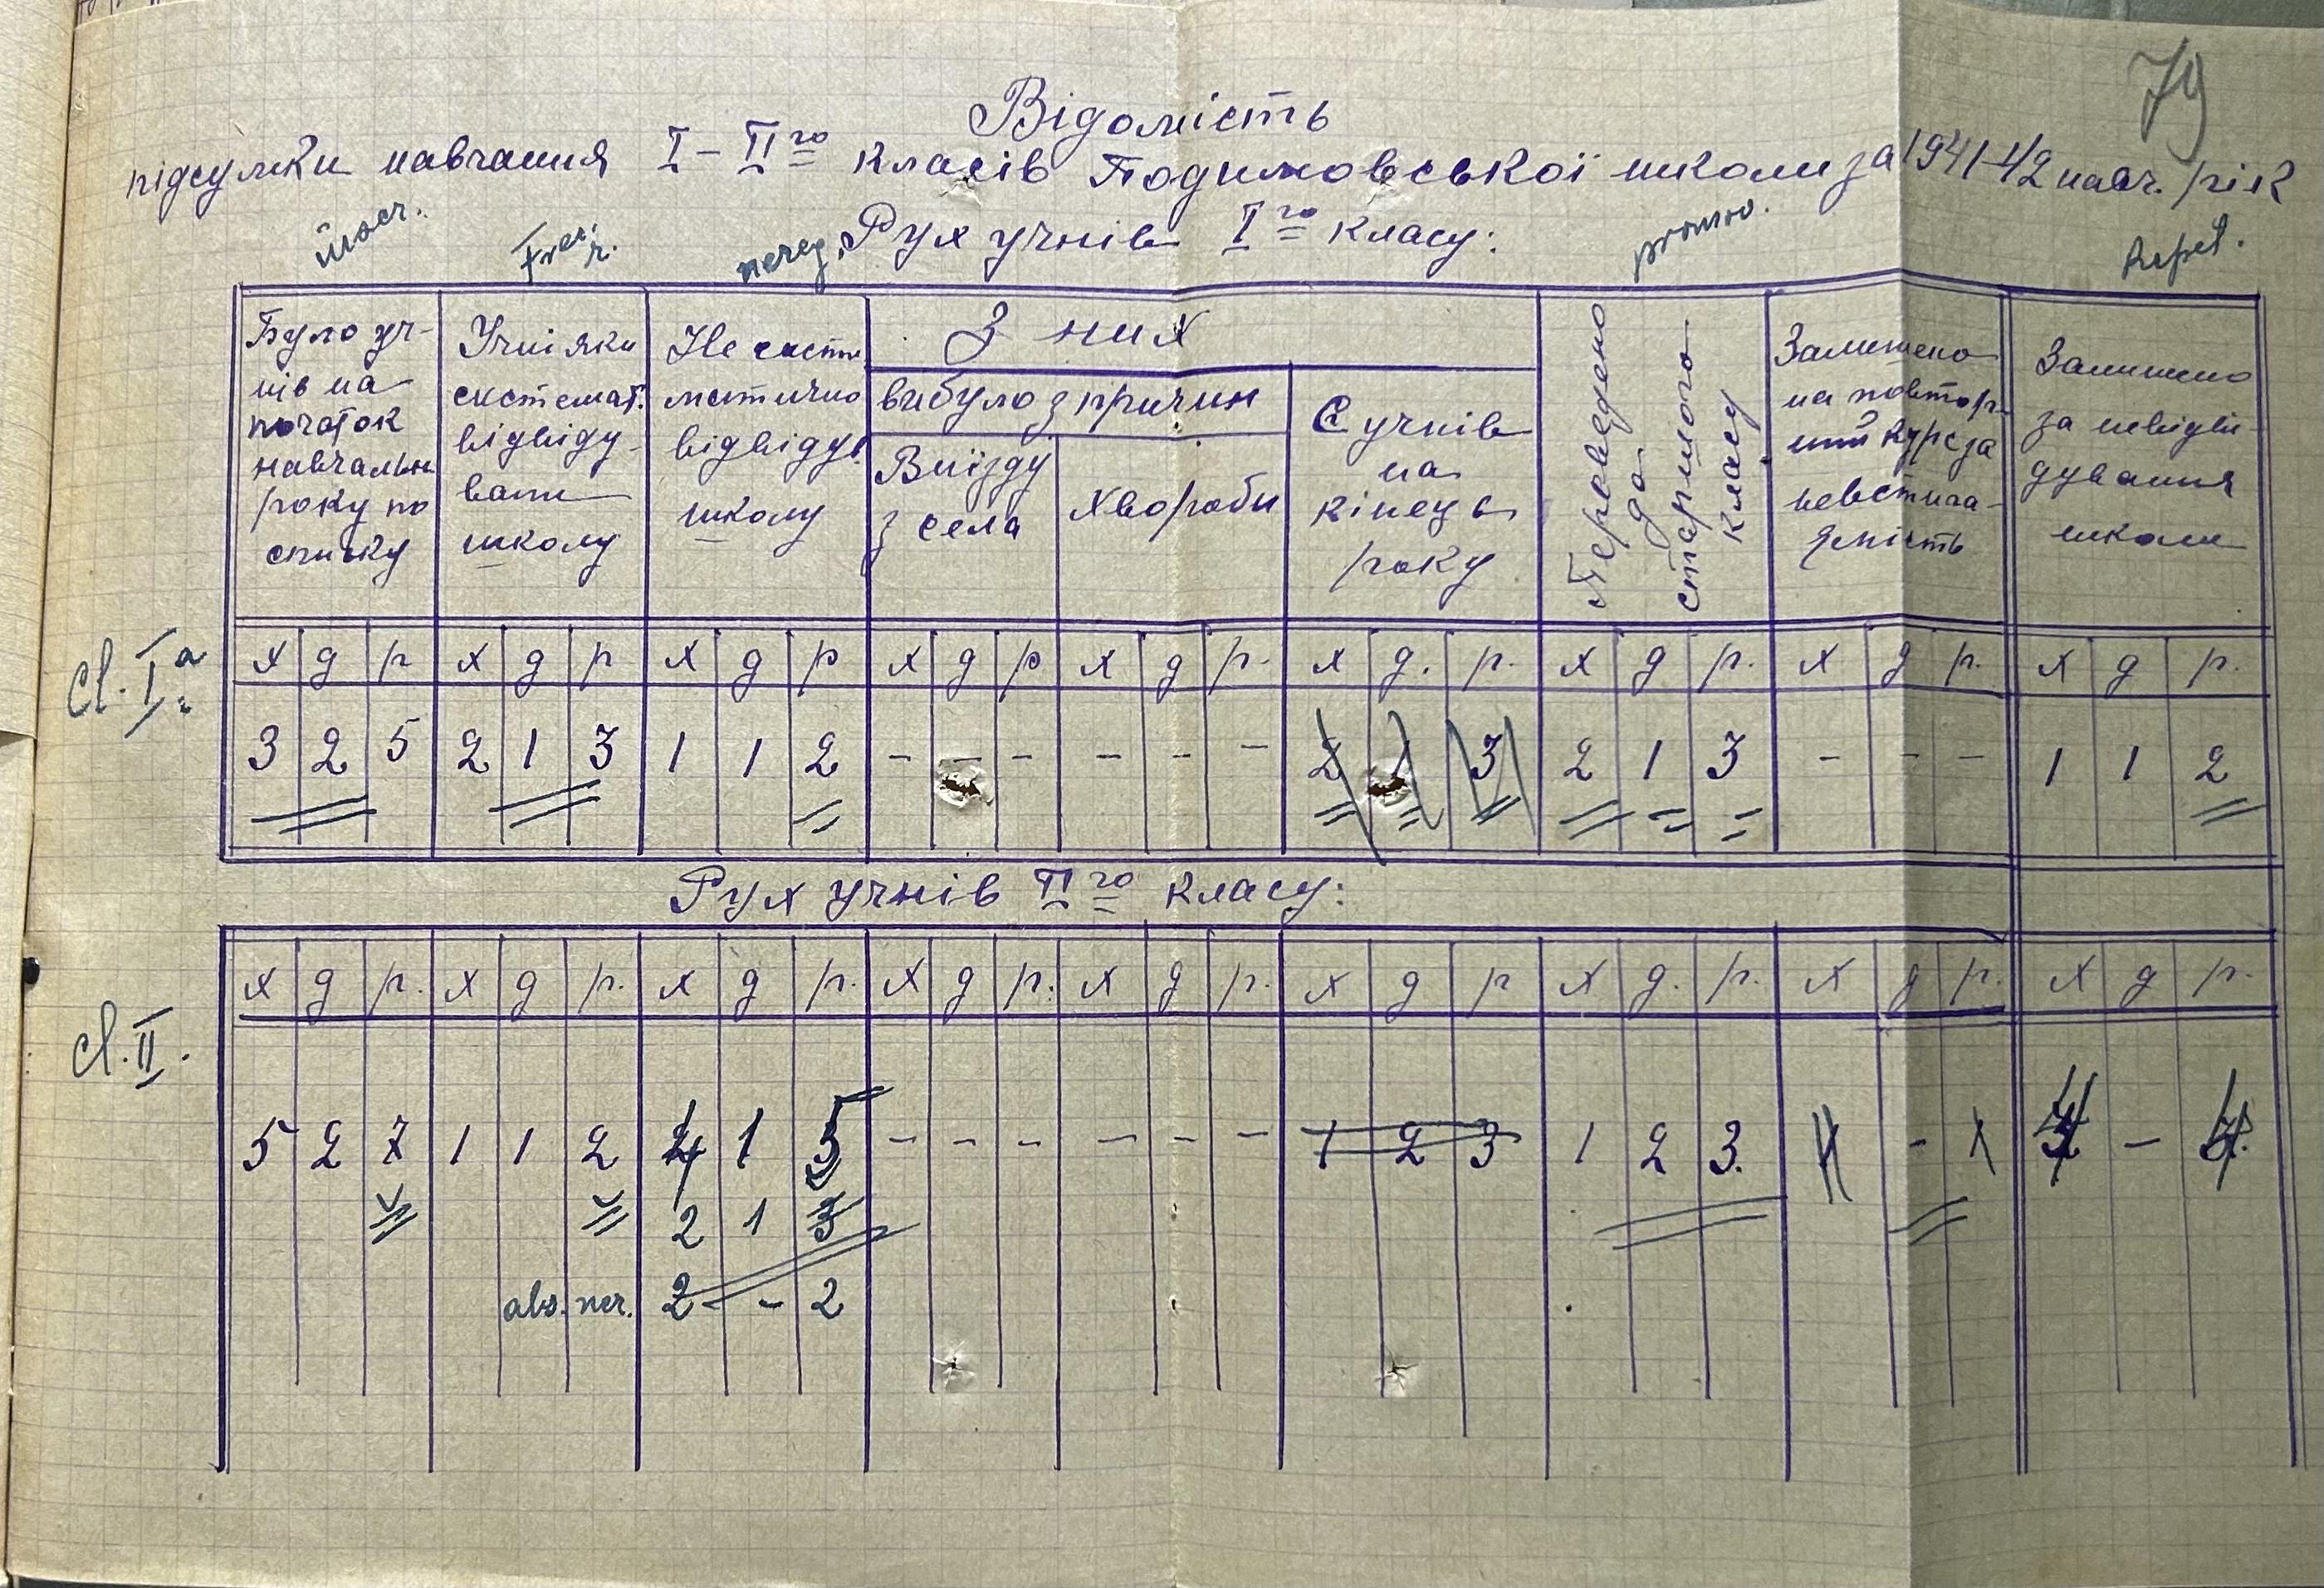 79
Відомість
підсумки навчання I–II го класів Подимовської школи за 1941-42 навч. рік
Рух учнів I го класу:
înscr.
Frec. r.
promov.
Repet.
Було уч-
нів на
початок
навчальн
року по
списку
Учні яки
системать.
відвіду-
вали
школу
Не систе
матично
відвідув.
школу
З них
вибуло з причин
Виїзду
з села
хвороби
Є учнів
на
кінець
року
Переведено
до
старшого
класу
Залишено
на повтор-
ний курс за
невстига-
ємість
Залишено
за невідві-
дування
школи
cl. I a
х д р х д р х д р х д р х д р. х д. р. х д р. х д р. х д р.
3 2 5 2 1 3 1 1 2 - - - - - - 2 1 3 2 1 3 - - - 1 1 2
Рух учнів II го класу:
cl. II.
х д р. х д р. х д р. х д р. х д р. х д р х д. р. х д р. х д р.
5 2 7 1 1 2 4 1 5 - - - - - - 1 2 3 1 2 3. - - 4.
2 1 3
abs. ner. 2 - 2